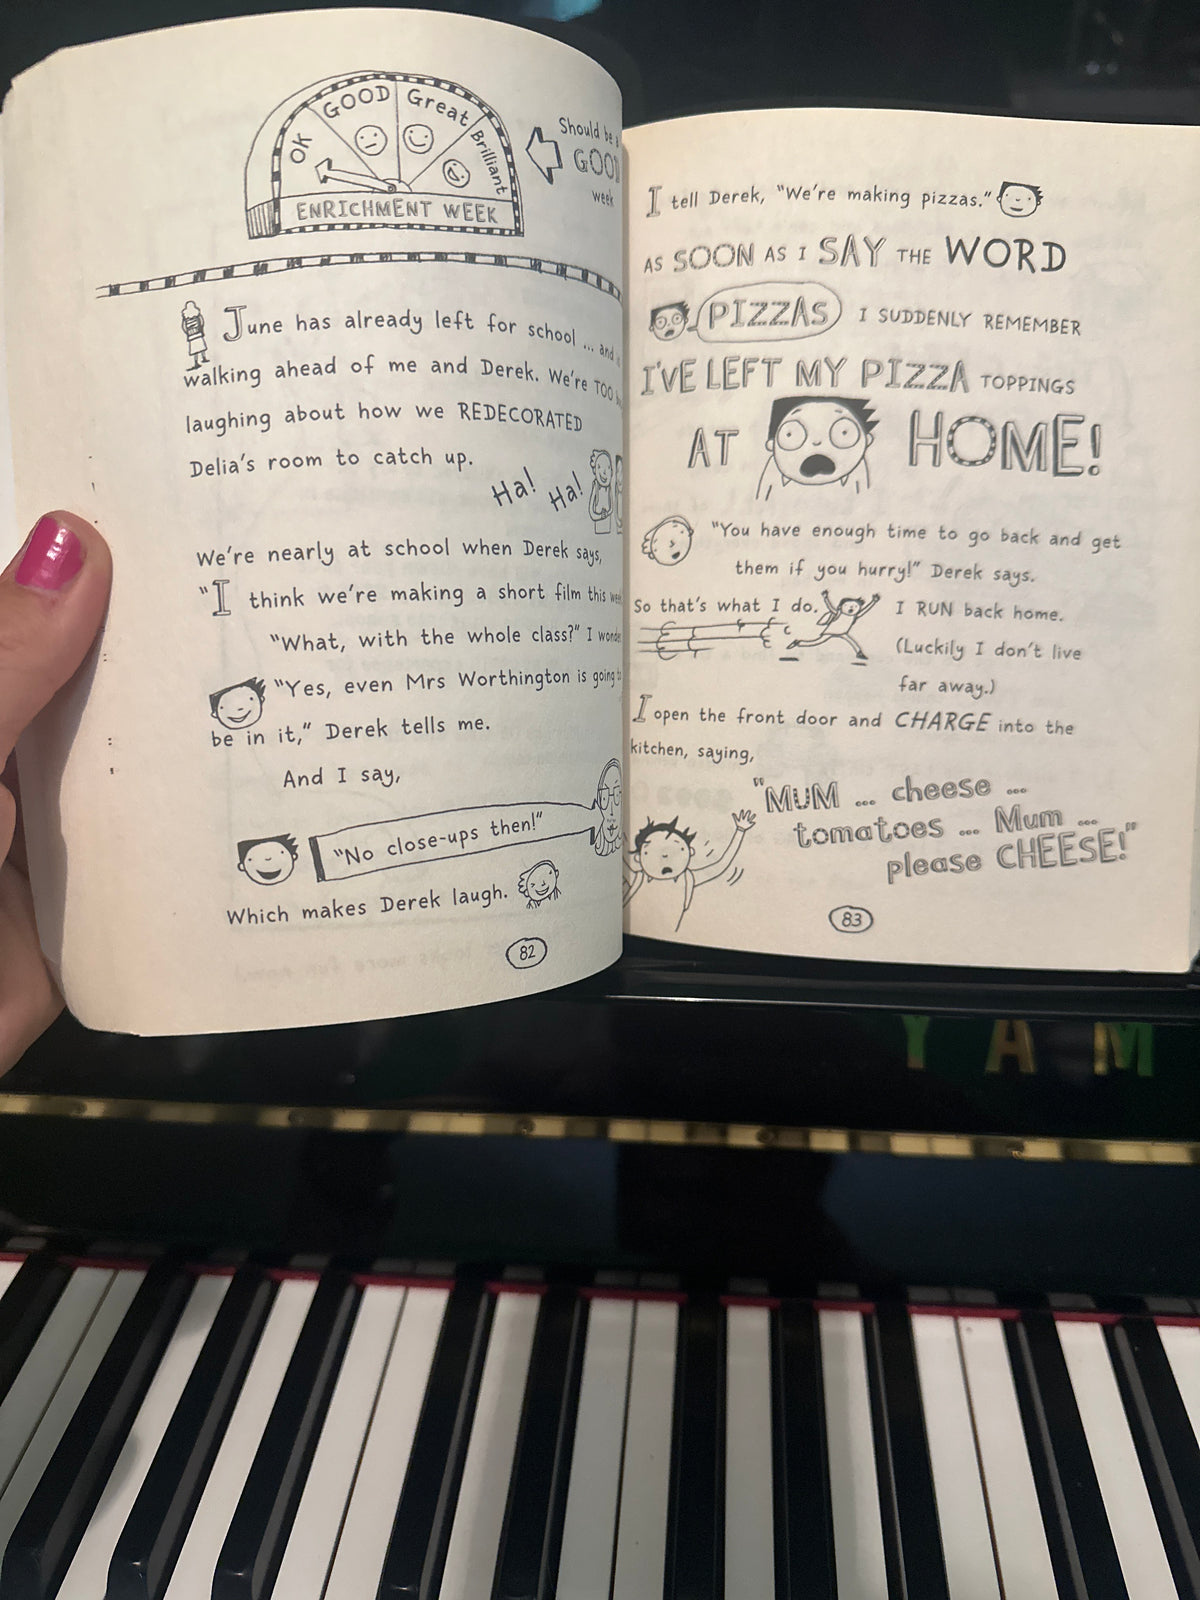 OK GOOD Great Brilliant
ENRICHMENT WEEK
Should be
GOOD
week
June has already left for school ... and
walking ahead of me and Derek. We're TOO
laughing about how we REDECORATED
Delia's room to catch up.
Ha! Ha!
We're nearly at school when Derek says,
"I think we're making a short film this
"What, with the whole class?" I
"Yes, even Mrs Worthington is going
be in it," Derek tells me.
And I say,
"No close-ups then!"
Which makes Derek laugh.
82
I tell Derek, "We're making pizzas."
AS SOON AS I SAY THE WORD
PIZZAS I SUDDENLY REMEMBER
I'VE LEFT MY PIZZA TOPPINGS
AT HOME!
"You have enough time to go back and get
them if you hurry!" Derek says.
So that's what I do. I RUN back home.
(Luckily I don't live
far away.)
I open the front door and CHARGE into the
kitchen, saying,
"MUM ... cheese ...
tomatoes ... Mum ...
please CHEESE!"
83
Y A M